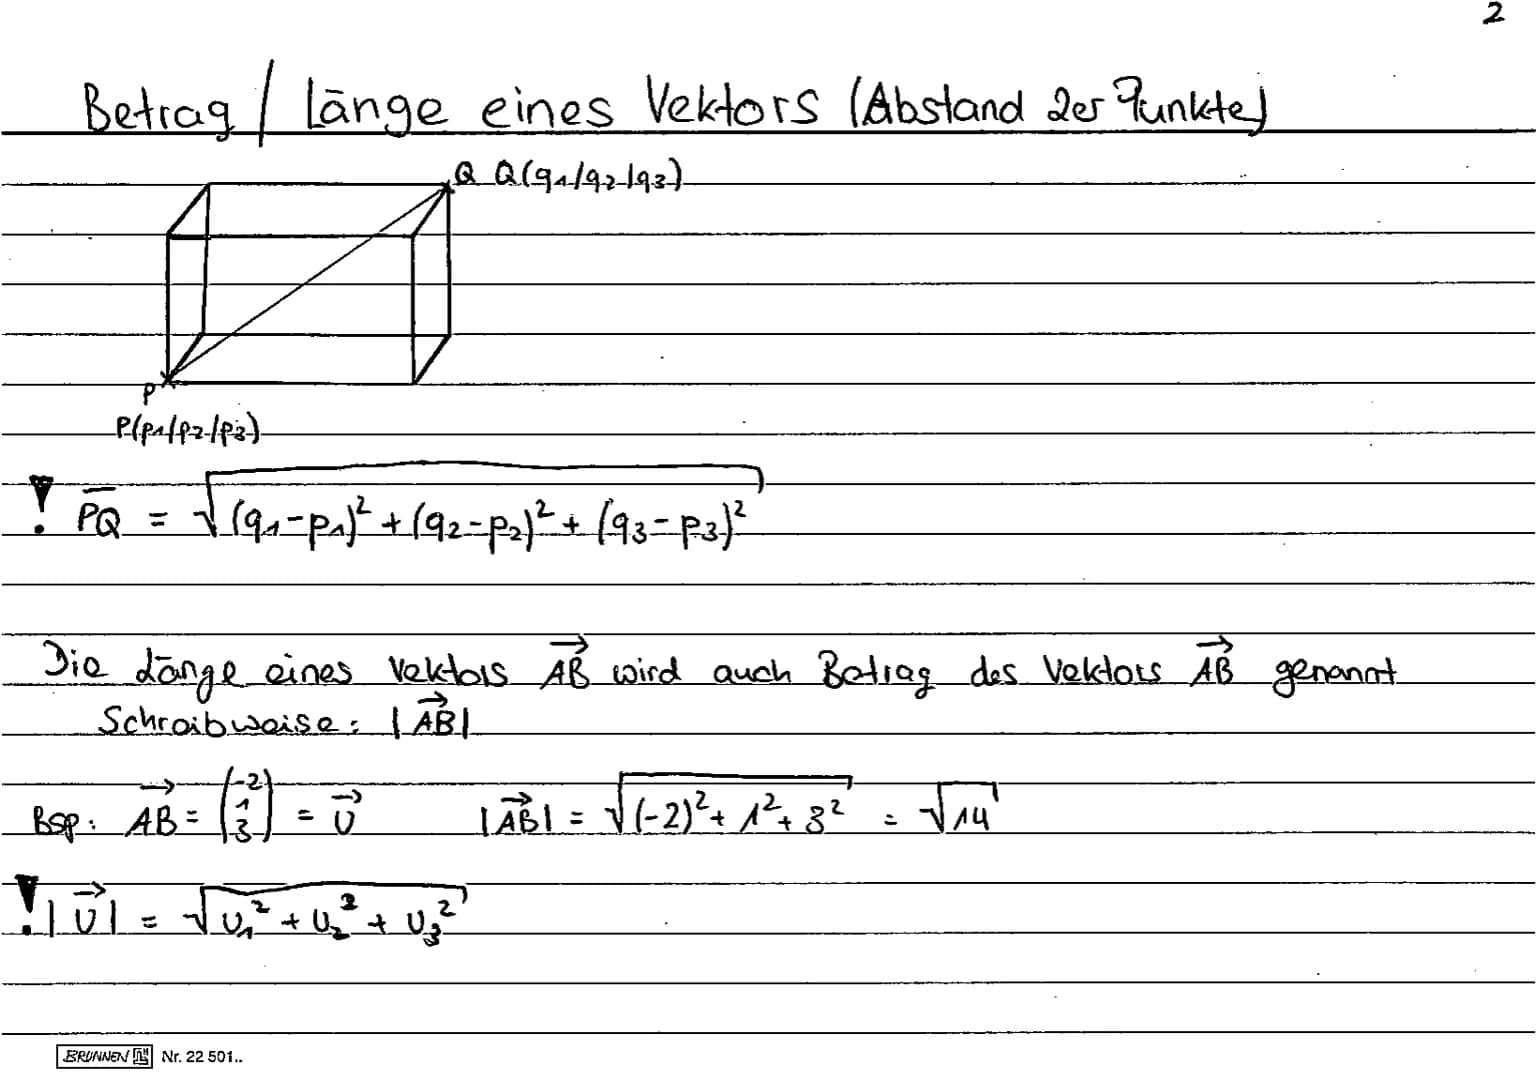 2
Betrag / Länge eines Vektors (Abstand 2er Punkte)
Q Q(q1/q2/q3)
P
P(p1/p2/p3)
! PQ̅ = √(q1-p1)² + (q2-p2)² + (q3-p3)²
Die Länge eines Vektors AB→ wird auch Betrag des Vektors AB→ genannt
Schreibweise: |AB→|
Bsp: AB→ = (-2 1 3) = u→ |AB→| = √(-2)² + 1² + 3² = √14
! |u→| = √u1² + u2² + u3²
BRUNNEN Nr. 22 501..